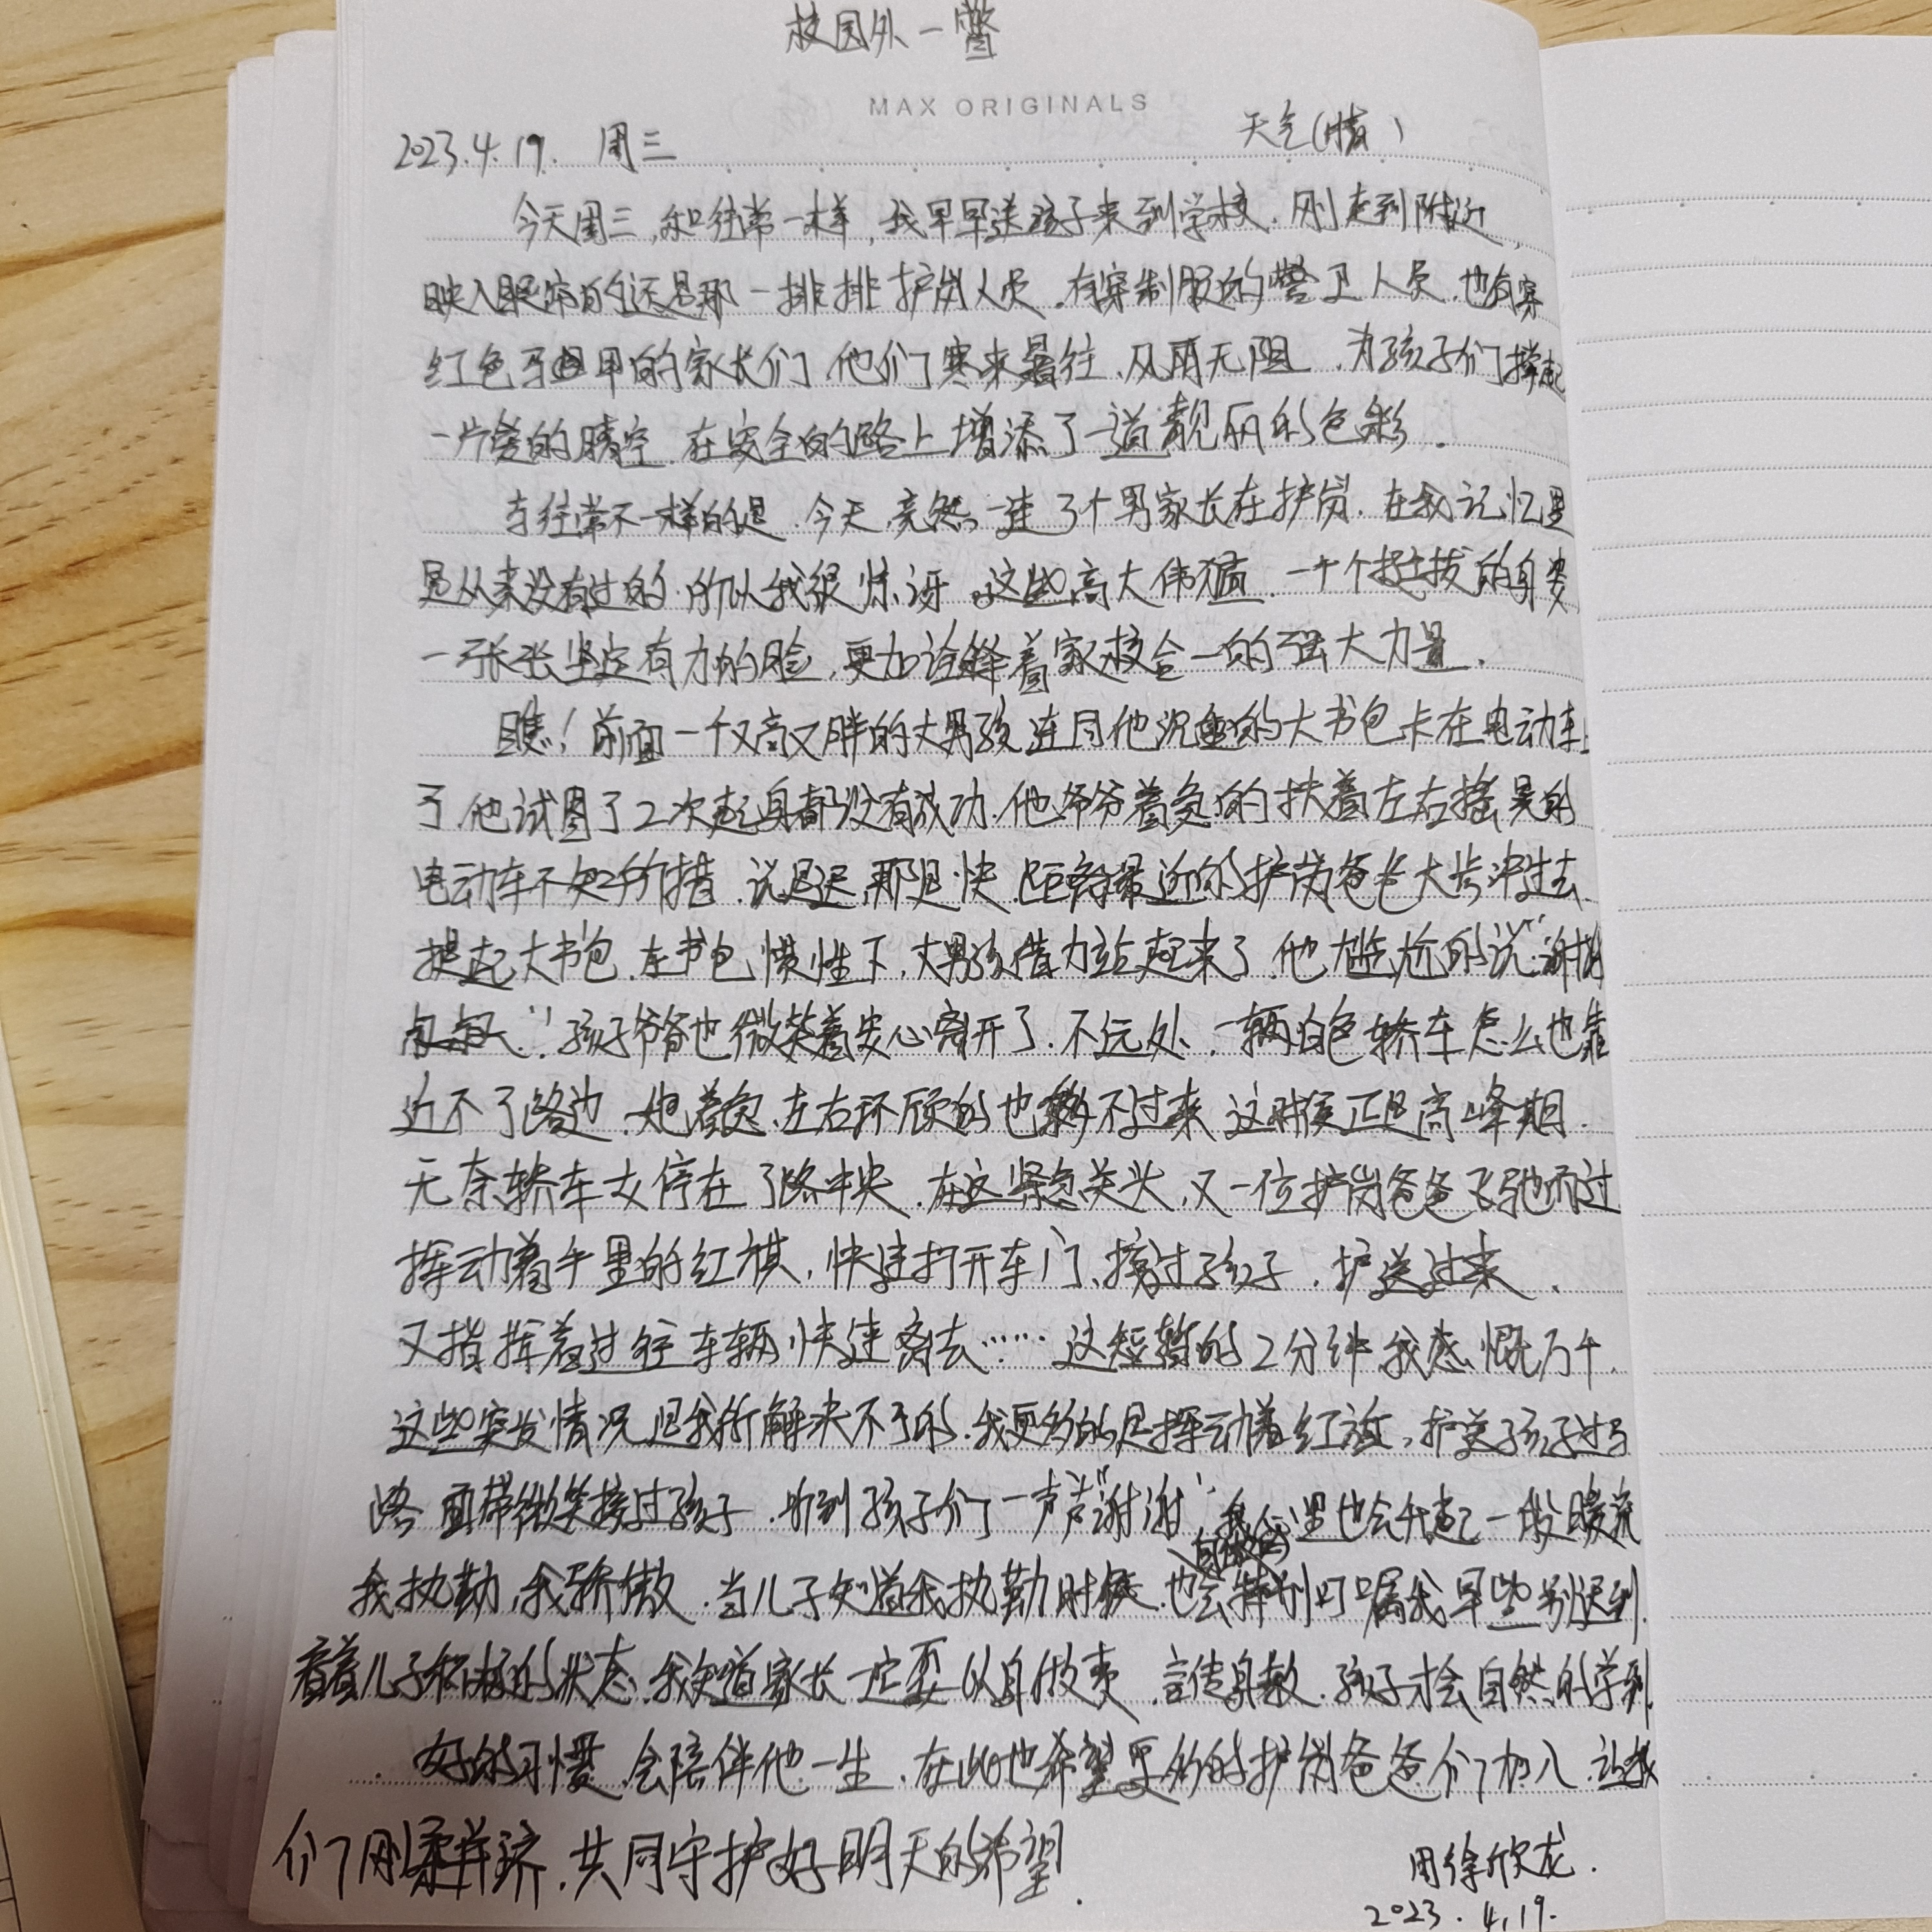 校园外一瞥
MAX ORIGINALS
2023.4.19. 周三 天气(晴)
今天周三,和往常一样,我早早送孩子来到学校.刚走到附近,
映入眼帘的还是那一排排护岗人员.有穿制服的警卫人员.也有穿
红色马甲的家长们.他们寒来暑往、风雨无阻.为孩子们撑起
一片爱的晴空.在安全的路上增添了一道靓丽的色彩.
与往常不一样的是.今天竟然一连了个男家长在护岗.在我记忆里
是从来没有过的.所以我很惊讶.这些高大伟岸.一个个挺拔的身姿
一张张坚定有力的脸,更加诠释着家校合一的强大力量.
瞧!前面一个又高又胖的大男孩连同他沉重的大书包卡在电动车上
了.他试图了2次起身都没有成功.他爷爷着急的扶着左右摇晃的
电动车不知所措.说是迟,那是快.距离最近的护岗爸爸大步冲过去.
提起大书包.在书包惯性下,大男孩借力站起来了.他尴尬的说:"谢谢
叔叔."孩子爷爷也微笑着安心离开了.不远处.一辆白色轿车怎么也靠
近不了路边.她着急.左右环顾的也移不过来.这时候正是高峰期.
无奈轿车女停在了路中央.在这紧急关头,又一位护岗爸爸飞驰而过
挥动着手里的红旗,快速打开车门、接过孩子.护送过来.
又指挥着过往车辆快速离去……这短暂的2分钟.我感慨万千.
这些突发情况是我所解决不了的.我更多的是挥动着红旗,护送孩子过马
路.面带微笑接过孩子.听到孩子们一声声"谢谢",我心里也会升起一股暖流
我执勤,我骄傲.当儿子知道我执勤时候.也会特别叮嘱我早些别迟到.
看着儿子积极的状态.我知道家长一定要以身做责.言传身教.孩子才会自然的学到.
好的习惯.会陪伴他一生.在此也希望更多的护岗爸爸们加入.让我
们刚柔并济.共同守护好明天的希望.
周徐欣龙.
2023.4.19.